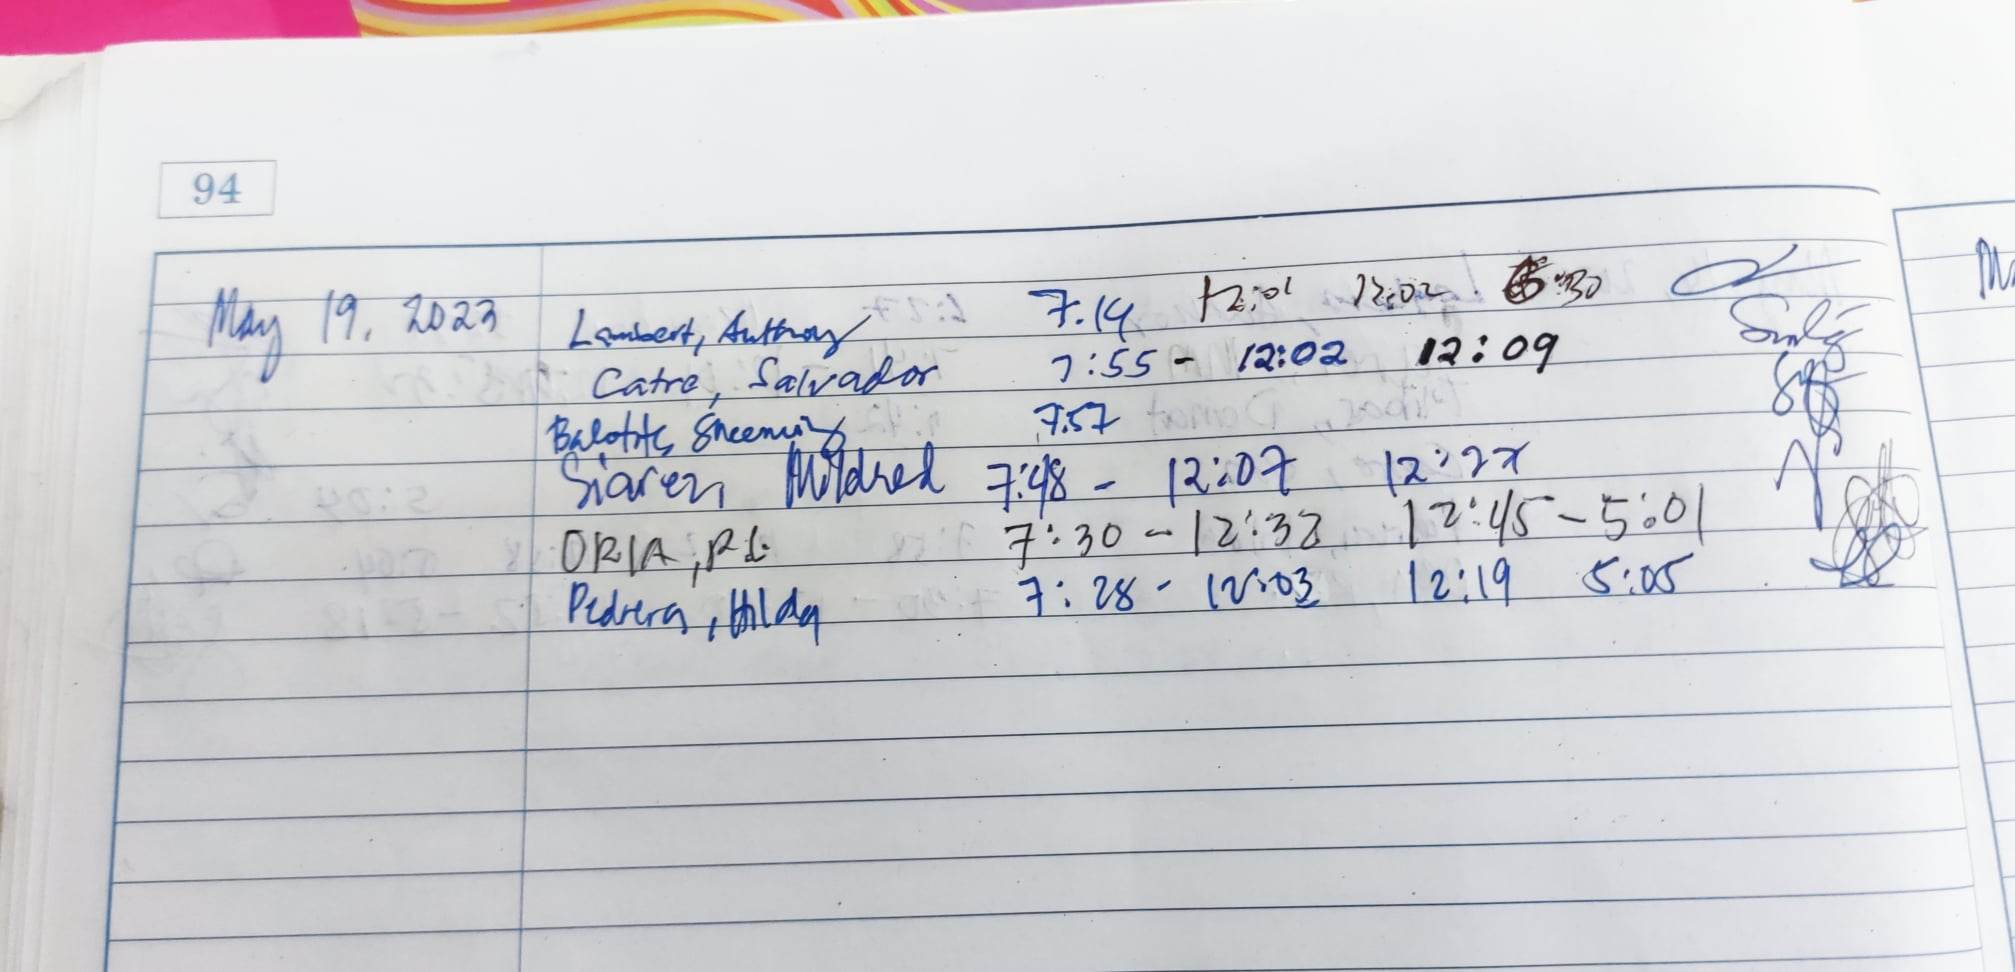 94
May 19, 2023
Lambert, Anthony 7:14 12:01 12:02 :30
Catre, Salvador 7:55 - 12:02 12:09
7:57
Siarez, Mildred 7:48 - 12:07 12:27
ORIA, 7:30 - 12:38 12:45 - 5:01
Pedrera, Hilda 7:28 - 12:03 12:19 5:05